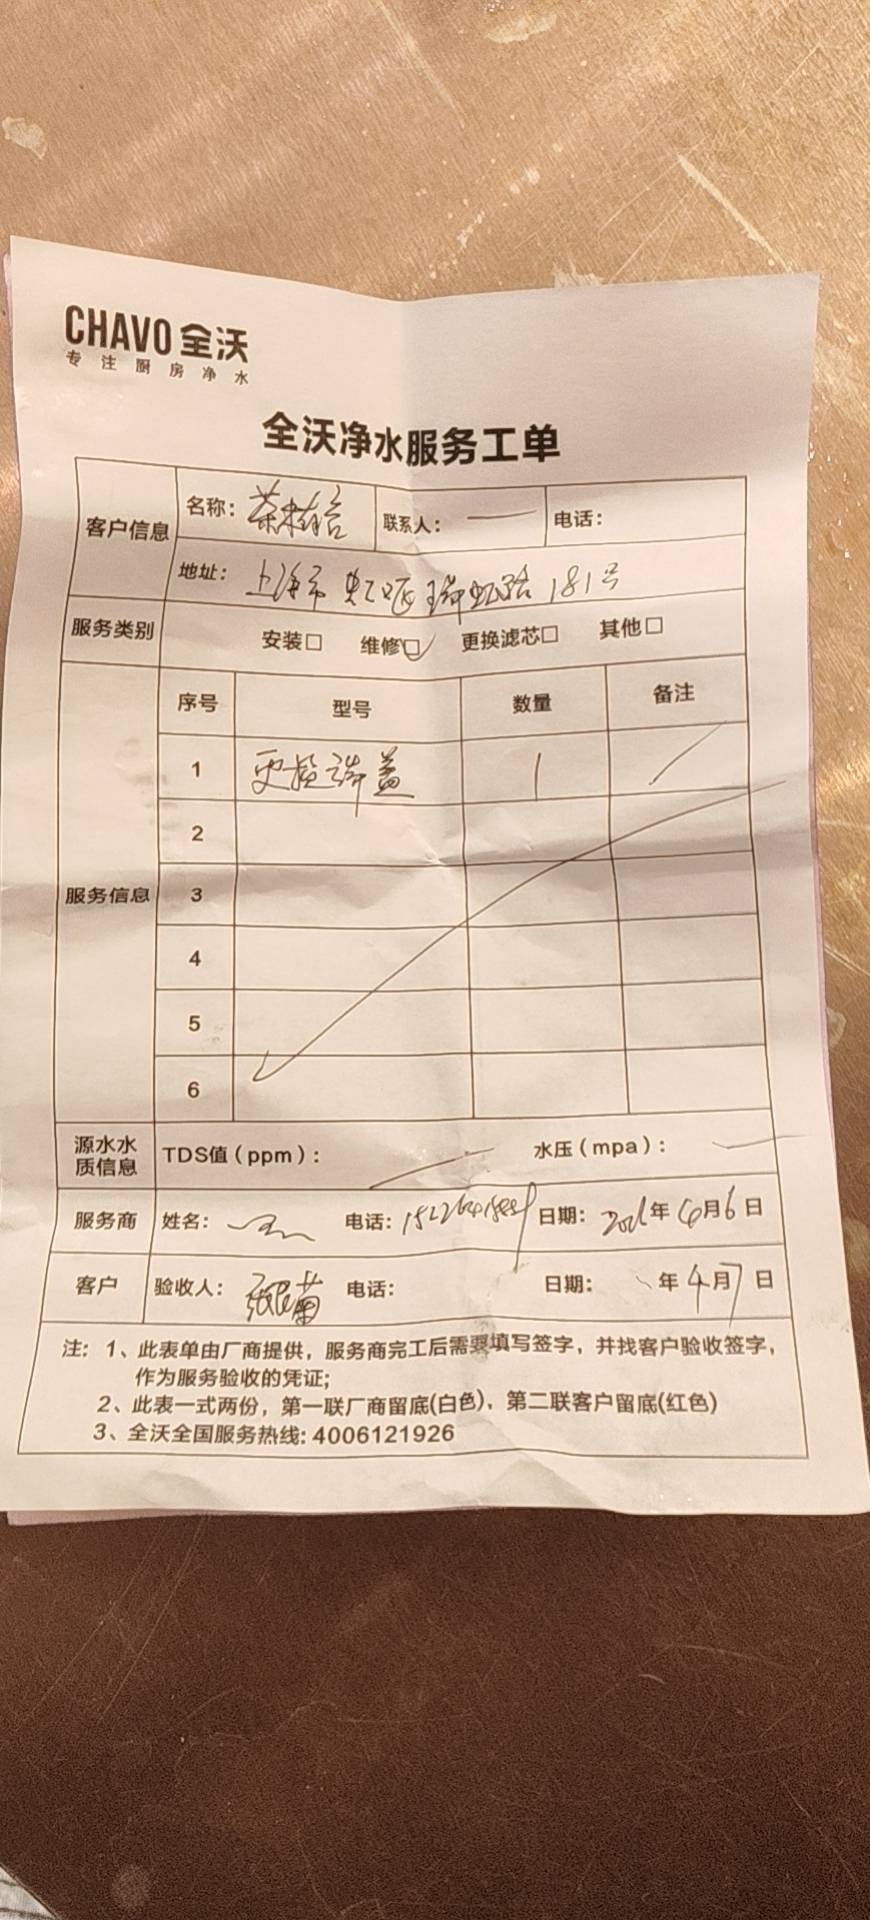 CHAVO 全沃
专注厨房净水
全沃净水服务工单
客户信息 名称： 联系人： 电话：
地址：上海市虹口区瑞虹路181号
服务类别 安装□ 维修□ 更换滤芯□ 其他□
序号 型号 数量 备注
1 更换端盖 1
2
服务信息 3
4
5
6
源水水质信息 TDS值（ppm）： 水压（mpa）：
服务商 姓名： 电话： 日期： 年4月6日
客户 验收人： 电话： 日期： 年4月7日
注：1、此表单由厂商提供，服务商完工后需要填写签字，并找客户验收签字，
作为服务验收的凭证；
2、此表一式两份，第一联厂商留底(白色)，第二联客户留底(红色)
3、全沃全国服务热线：4006121926